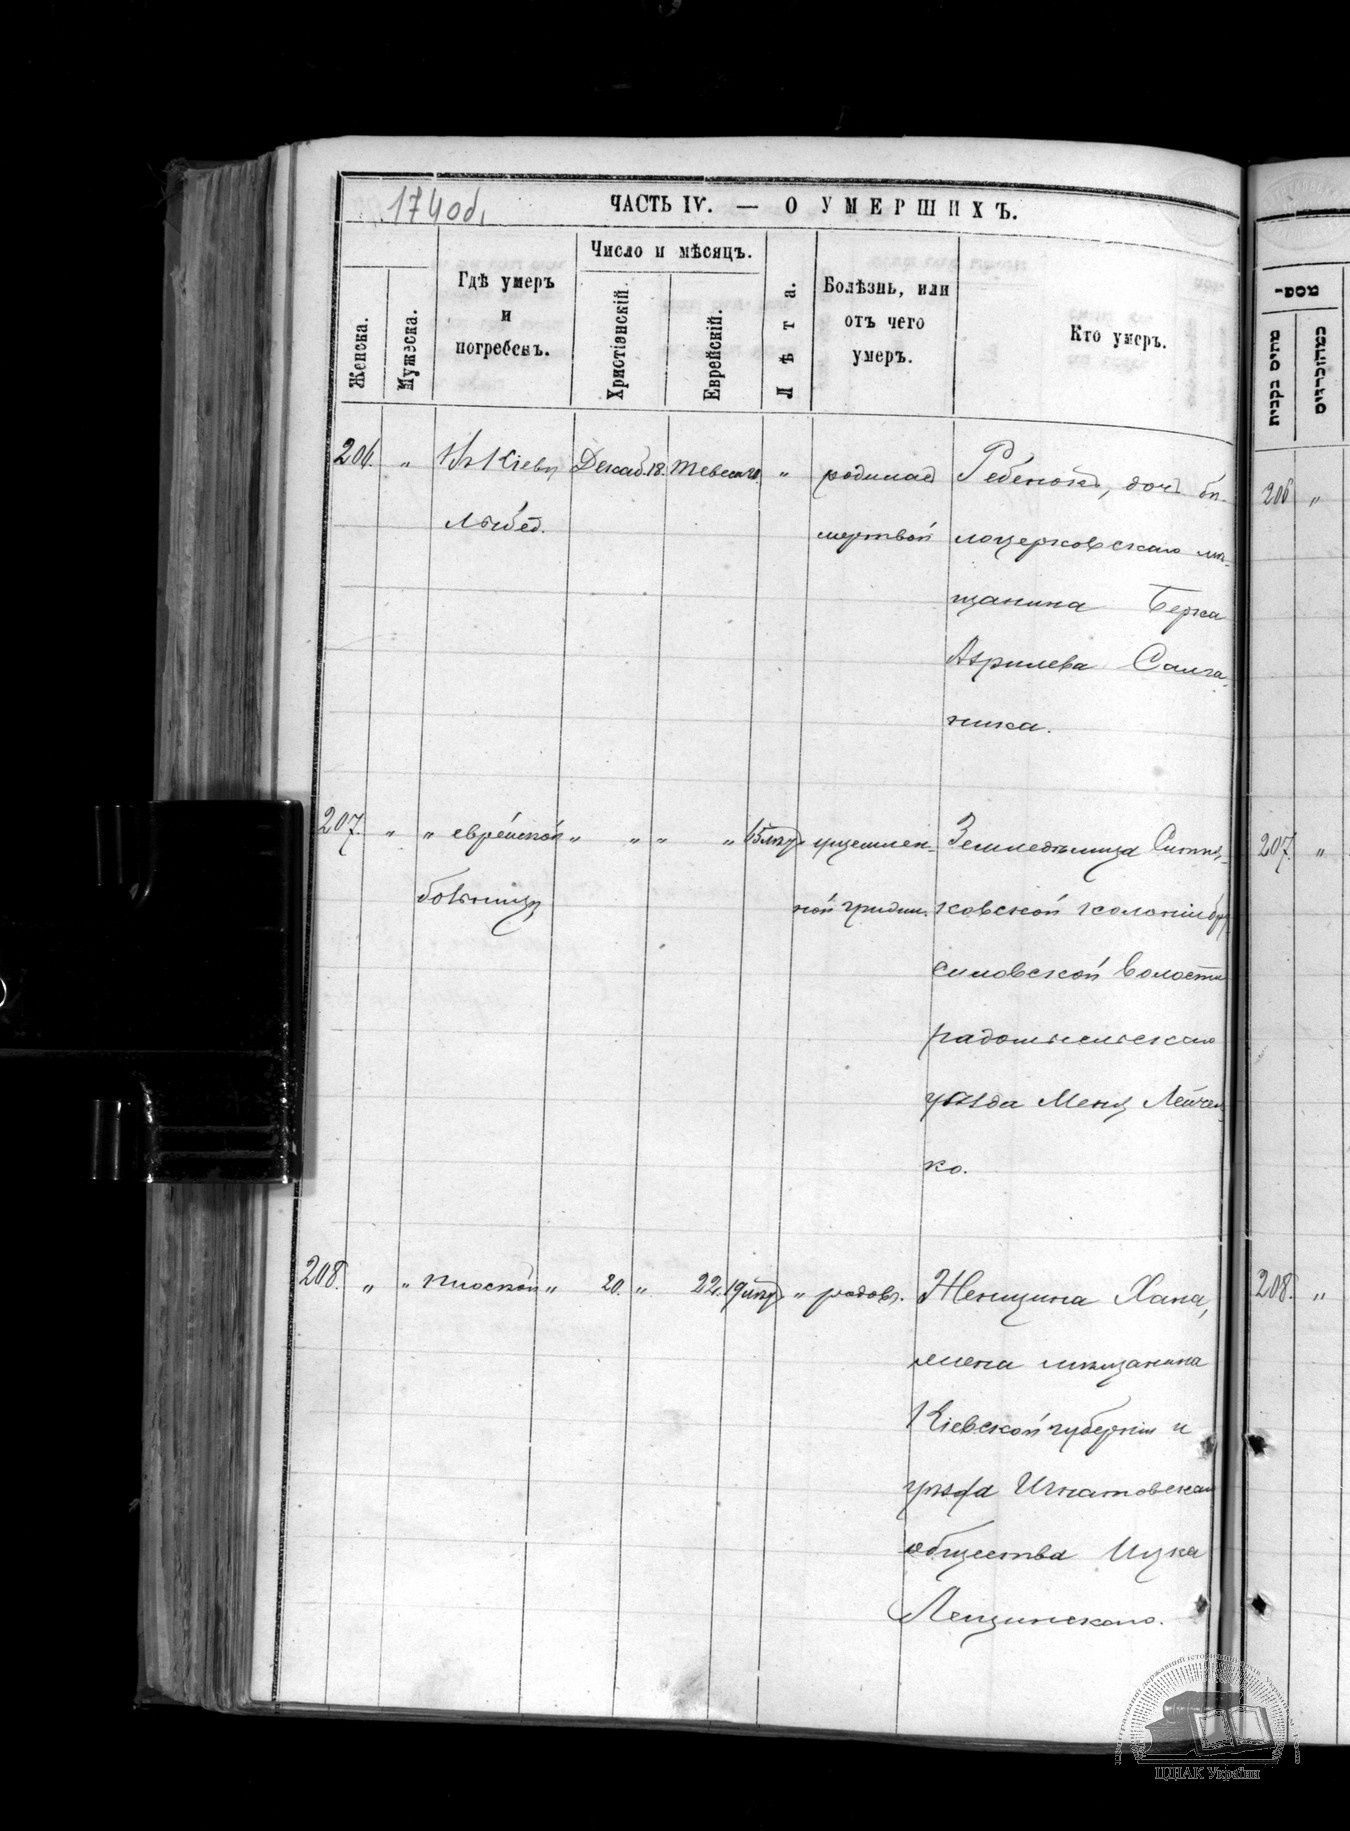 174 об.
ЧАСТЬ IV. — О УМЕРШИХЪ.
Женска.
Мужеска.
Гдѣ умеръ
и
погребенъ.
Число и мѣсяцъ.
Христіанскій.
Еврейскій.
Лѣта.
Болѣзнь, или
отъ чего
умеръ.
Кто умеръ.
206. " Декаб. 18. "
Лыбед.
родилась
мертвой
Ребенокъ, дочь бѣ-
лоцерковскаго мѣ-
щанина Берка
Азрилева Салга-
ника.
207. " " еврейской " " " "
больницѣ
ущемлен-
ной
Земледѣлица
ковской колоніи бру-
силовской волости
радомысльскаго
уѣзда
ко.
208. " " плоской " 20. " 22. " родовъ.
Женщина Хана,
жена мѣщанина
Кіевской губерніи и
уѣзда Игнатовскаго
общества Ицка
Лещинскаго.
206 "
207. "
208. "
ЦДІАК України